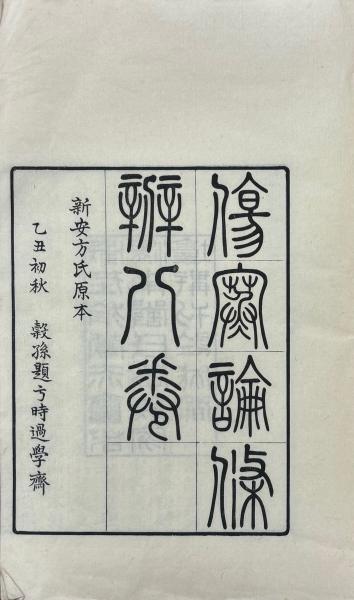 傷寒論條
辨八卷
新安方氏原本
乙丑初秋 穀孫題亏時過學齋